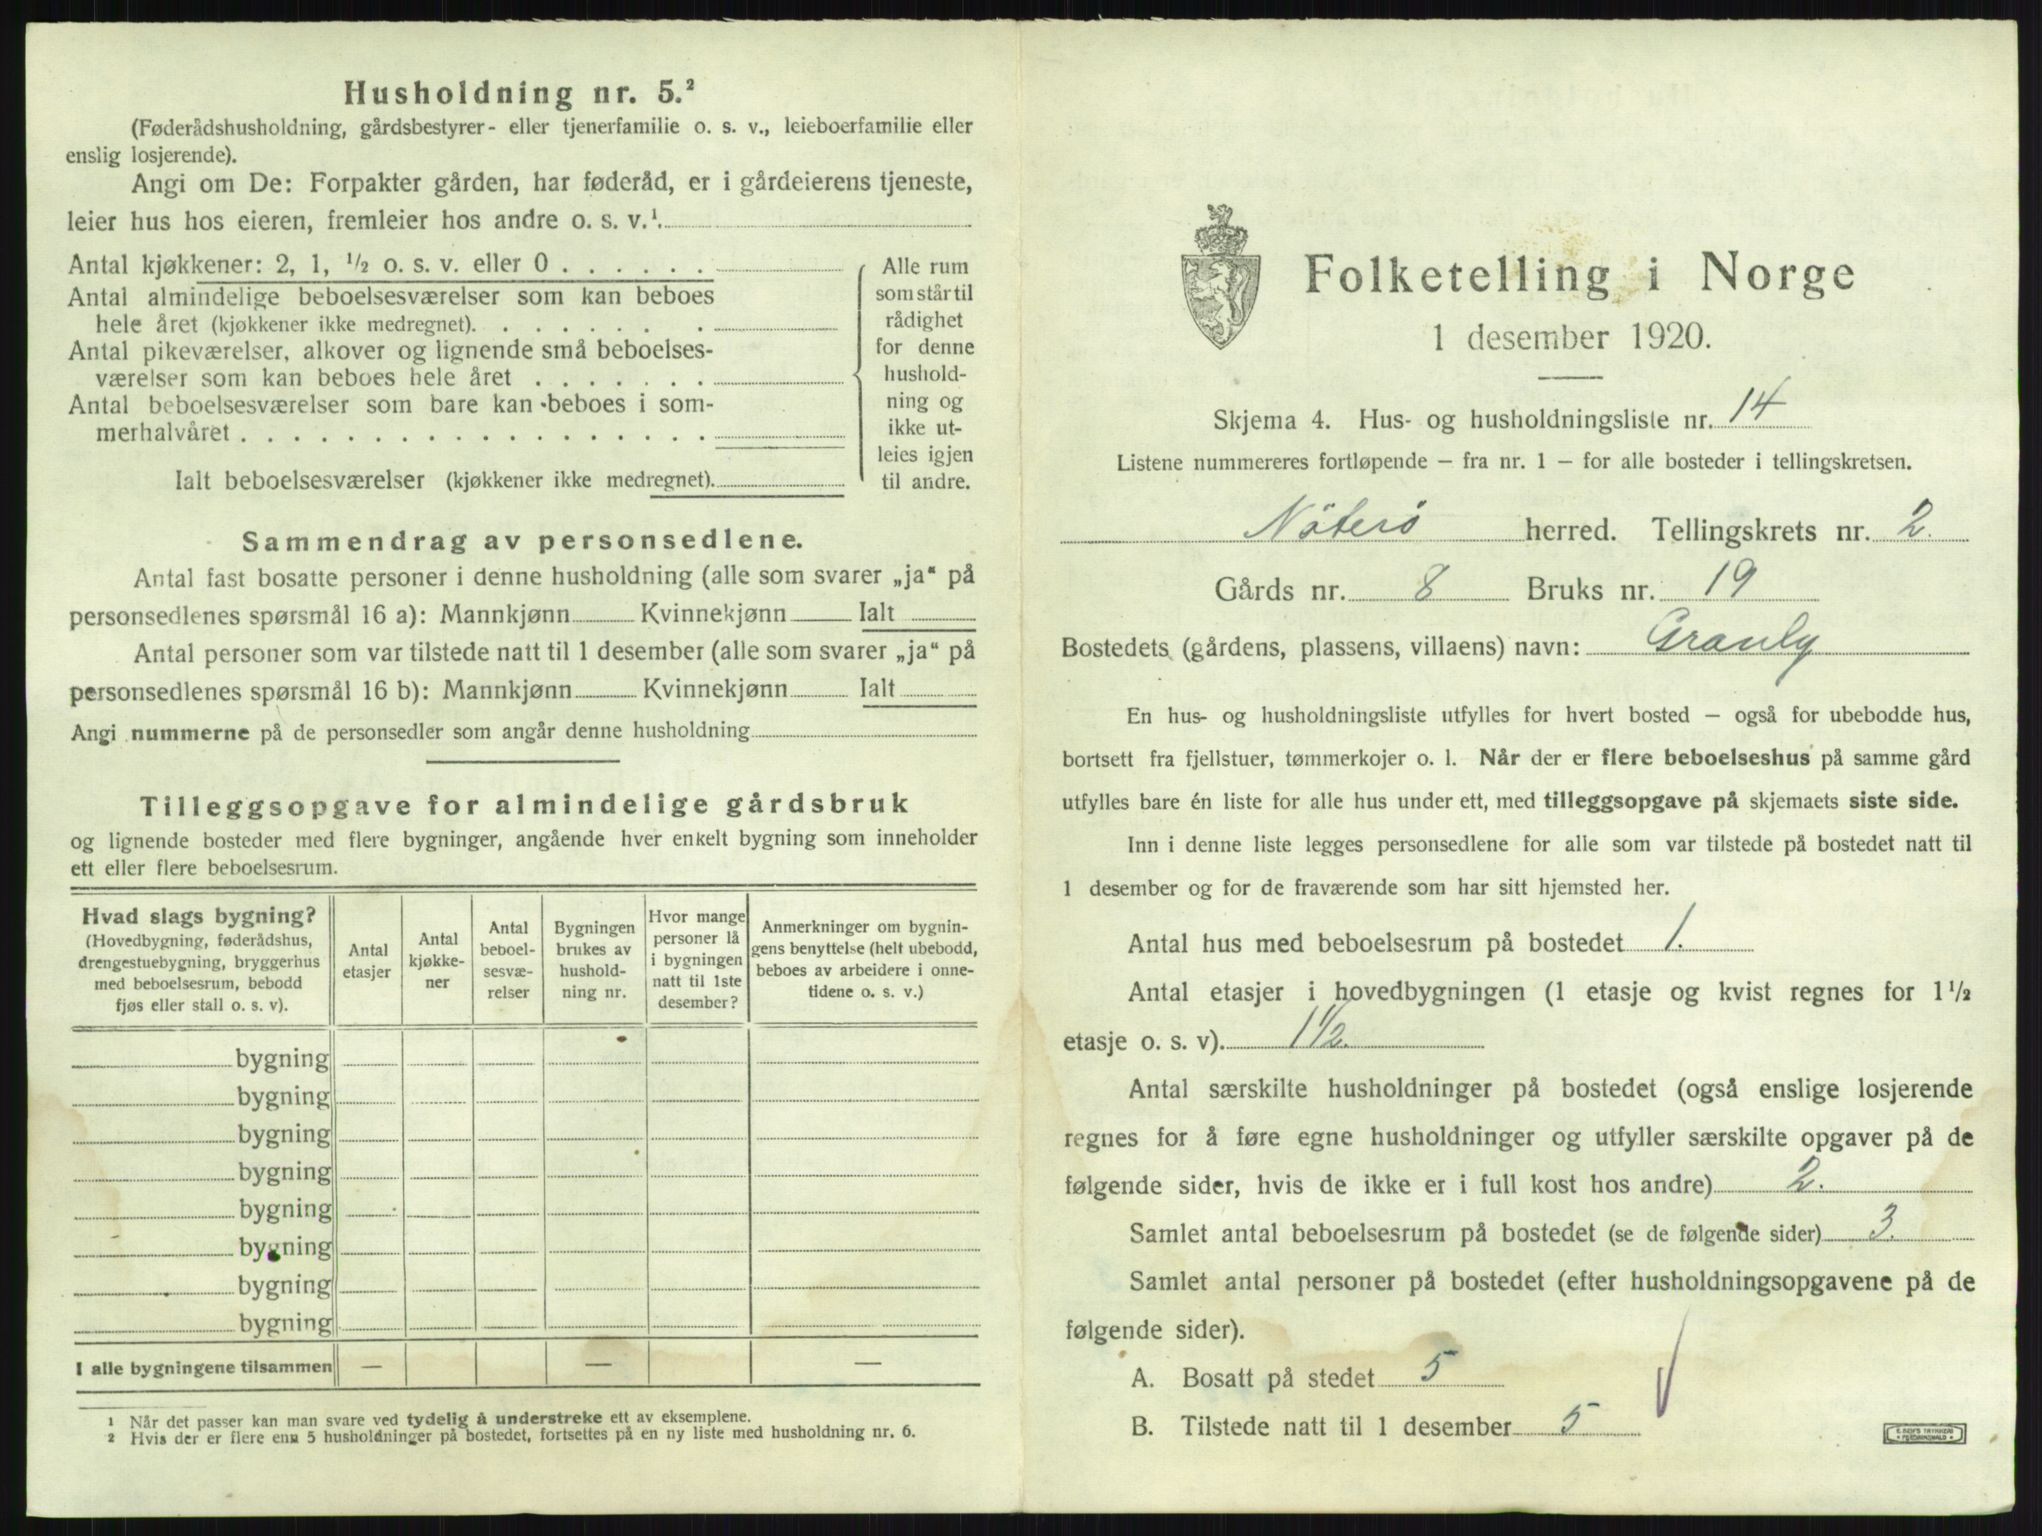 Husholdning nr. 5.²
(Føderådshusholdning, gårdsbestyrer- eller tjenerfamilie o. s. v., leieboerfamilie eller
enslig losjerende).
Angi om De: Forpakter gården, har føderåd, er i gårdeierens tjeneste,
leier hus hos eieren, fremleier hos andre o. s. v.¹.
Antal kjøkkener: 2, 1, ½ o. s. v. eller 0 . . . . . .
Antal almindelige beboelsesværelser som kan beboes
hele året (kjøkkener ikke medregnet). . . . . . . .
Antal pikeværelser, alkover og lignende små beboelses-
værelser som kan beboes hele året . . . . . . .
Antal beboelsesværelser som bare kan beboes i som-
merhalvåret . . . . . . . . . . . . . . . . . .
Ialt beboelsesværelser (kjøkkener ikke medregnet).
Alle rum
som står til
rådighet
for denne
hushold-
ning og
ikke ut-
leies igjen
til andre.
Sammendrag av personsedlene.
Antal fast bosatte personer i denne husholdning (alle som svarer „ja“ på
personsedlenes spørsmål 16 a): Mannkjønn Kvinnekjønn Ialt
Antal personer som var tilstede natt til 1 desember (alle som svarer „ja“ på
personsedlenes spørsmål 16 b): Mannkjønn Kvinnekjønn Ialt
Angi nummerne på de personsedler som angår denne husholdning
Tilleggsopgave for almindelige gårdsbruk
og lignende bosteder med flere bygninger, angående hver enkelt bygning som inneholder
ett eller flere beboelsesrum.
Hvad slags bygning?
(Hovedbygning, føderådshus,
drengestuebygning, bryggerhus
med beboelsesrum, bebodd
fjøs eller stall o. s. v).
Antal
etasjer
Antal
kjøkke-
ner
Antal
beboel-
sesvæ-
relser
Bygningen
brukes av
hushold-
ning nr.
Hvor mange
personer lå
i bygningen
natt til 1ste
desember?
Anmerkninger om bygnin-
gens benyttelse (helt ubebodd,
beboes av arbeidere i onne-
tidene o. s. v.)
bygning
bygning
bygning
bygning
bygning
bygning
bygning
bygning
I alle bygningene tilsammen — — —
¹ Når det passer kan man svare ved tydelig å understreke ett av eksemplene.
² Hvis der er flere enn 5 husholdninger på bostedet, fortsettes på en ny liste med husholdning nr. 6.
Folketelling i Norge
1 desember 1920.
Skjema 4. Hus- og husholdningsliste nr. 14
Listene nummereres fortløpende – fra nr. 1 – for alle bosteder i tellingskretsen.
Nöterö herred. Tellingskrets nr. 2.
Gårds nr. 8 Bruks nr. 19
Bostedets (gårdens, plassens, villaens) navn: Granly
En hus- og husholdningsliste utfylles for hvert bosted – også for ubebodde hus,
bortsett fra fjellstuer, tømmerkojer o. l. Når der er flere beboelseshus på samme gård
utfylles bare én liste for alle hus under ett, med tilleggsopgave på skjemaets siste side.
Inn i denne liste legges personsedlene for alle som var tilstede på bostedet natt til
1 desember og for de fraværende som har sitt hjemsted her.
Antal hus med beboelsesrum på bostedet 1.
Antal etasjer i hovedbygningen (1 etasje og kvist regnes for 1½
etasje o. s. v). 1½.
Antal særskilte husholdninger på bostedet (også enslige losjerende
regnes for å føre egne husholdninger og utfyller særskilte opgaver på de
følgende sider, hvis de ikke er i full kost hos andre) 2.
Samlet antal beboelsesrum på bostedet (se de følgende sider) 3.
Samlet antal personer på bostedet (efter husholdningsopgavene på de
følgende sider).
A. Bosatt på stedet 5
B. Tilstede natt til 1 desember 5